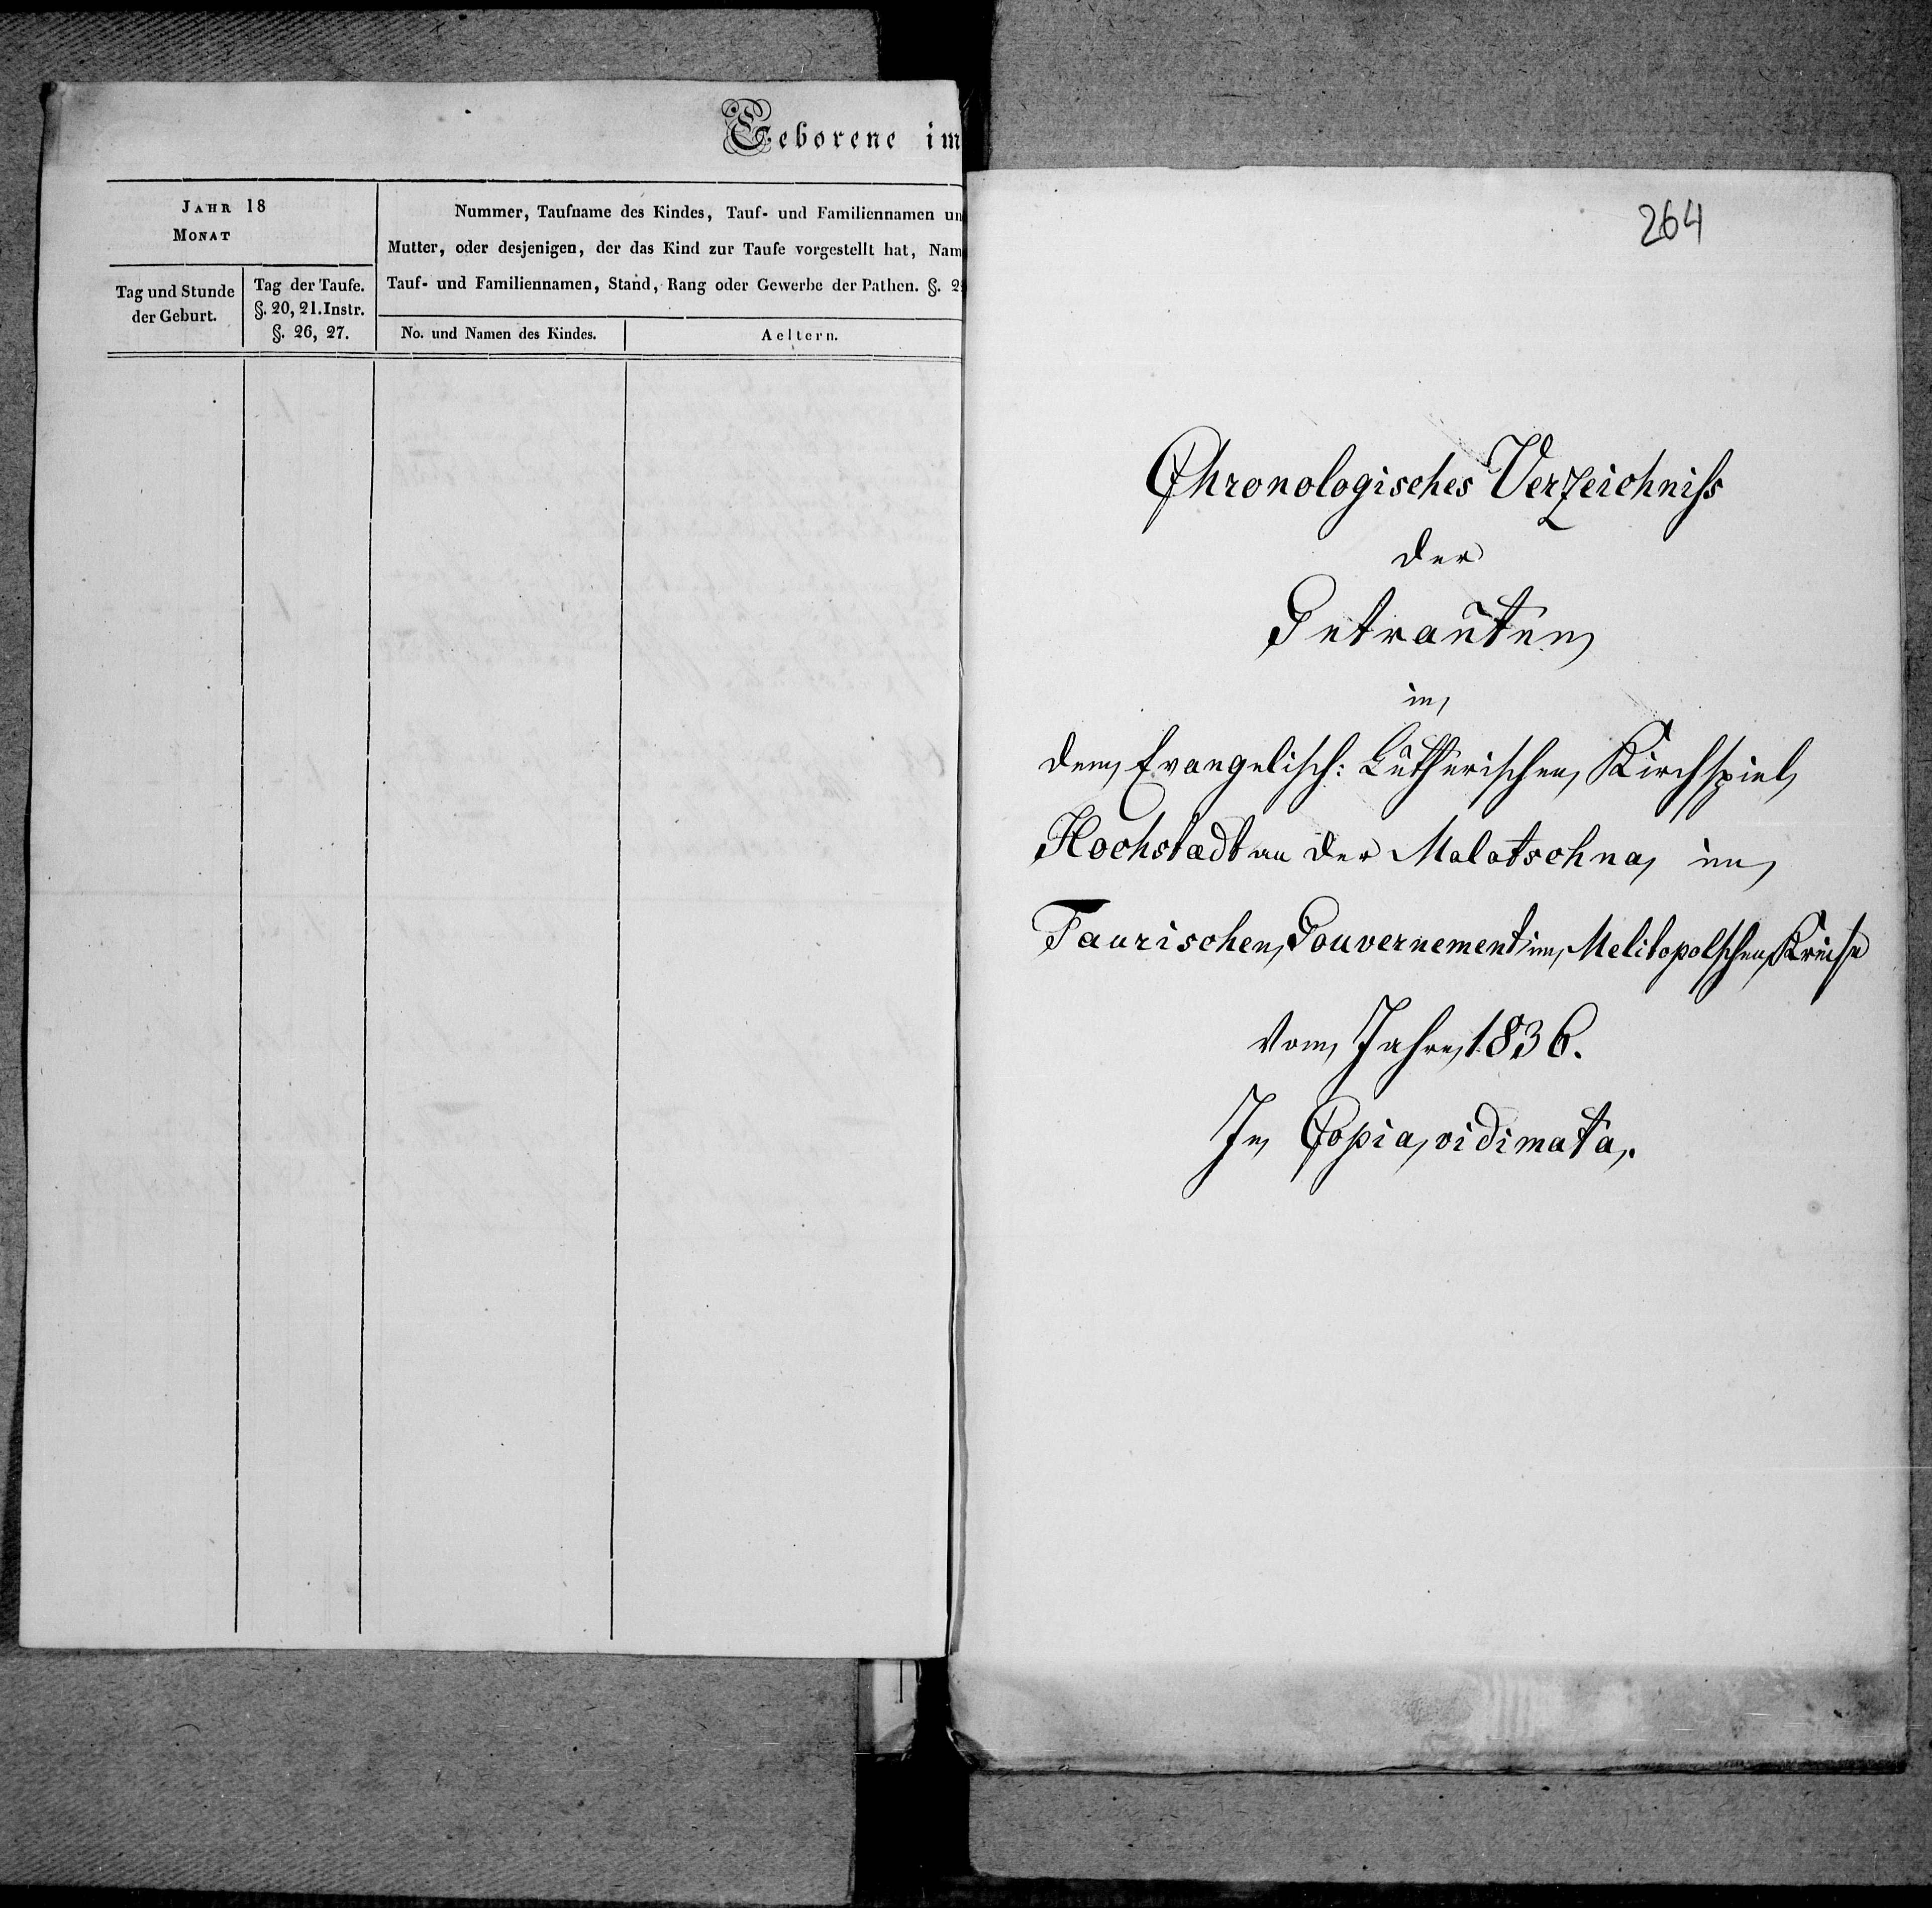 Geborene im
JAHR 18
MONAT
Nummer, Taufname des Kindes, Tauf- und Familiennamen un
Mutter, oder desjenigen, der das Kind zur Taufe vorgestellt hat, Nam
Tauf- und Familiennamen, Stand, Rang oder Gewerbe der Pathen. §. 2
Tag und Stunde
der Geburt.
Tag der Taufe.
§. 20, 21. Instr.
§. 26, 27.
No. und Namen des Kindes.
Aeltern.
264
Chronologisches Verzeichniss
der
Getrauten
in
dem Evangelisch: Lutherischen Kirchspiel
Hochstadt an der Molotschna, im
Taurischen Gouvernement im Melitopolschen Kreise
vom Jahre 1836.
In Copia vidimata.